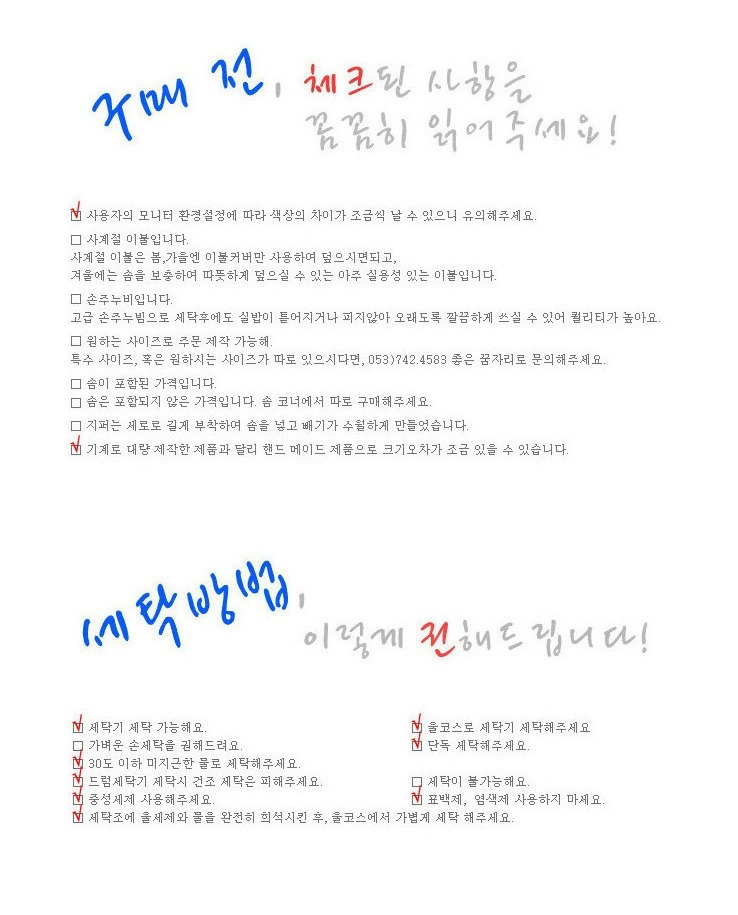 구매 전, 체크된 사항을
꼼꼼히 읽어주세요!
사용자의 모니터 환경설정에 따라 색상의 차이가 조금씩 날 수 있으니 유의해주세요.
사계절 이불입니다.
사계절 이불은 봄,가을엔 이불커버만 사용하여 덮으시면되고,
겨울에는 솜을 보충하여 따뜻하게 덮으실 수 있는 아주 실용성 있는 이불입니다.
손주누비입니다.
고급 손주누빔으로 세탁후에도 실밥이 틀어지거나 피지않아 오래도록 깔끔하게 쓰실 수 있어 퀄리티가 높아요.
원하는 사이즈로 주문 제작 가능해.
특수 사이즈, 혹은 원하시는 사이즈가 따로 있으시다면, 053)742.4583 좋은 꿈자리로 문의해주세요.
솜이 포함된 가격입니다.
솜은 포함되지 않은 가격입니다. 솜 코너에서 따로 구매해주세요.
지퍼는 세로로 길게 부착하여 솜을 넣고 빼기가 수월하게 만들었습니다.
기계로 대량 제작한 제품과 달리 핸드 메이드 제품으로 크기오차가 조금 있을 수 있습니다.
세탁방법,
이렇게 권해드립니다!
세탁기 세탁 가능해요.
울코스로 세탁기 세탁해주세요
가벼운 손세탁을 권해드려요.
단독 세탁해주세요.
30도 이하 미지근한 물로 세탁해주세요.
드럼세탁기 세탁시 건조 세탁은 피해주세요.
세탁이 불가능해요.
중성세제 사용해주세요.
표백제, 염색제 사용하지 마세요.
세탁조에 울세제와 물을 완전히 희석시킨 후, 울코스에서 가볍게 세탁 해주세요.